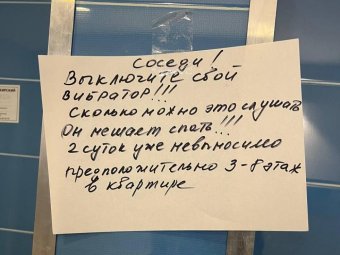 Соседи!
Выключите свой
вибратор!!!
Сколько можно это слушать
Он мешает спать!!!
2 суток уже невыносимо
предположительно 3-8 этаж
в квартире